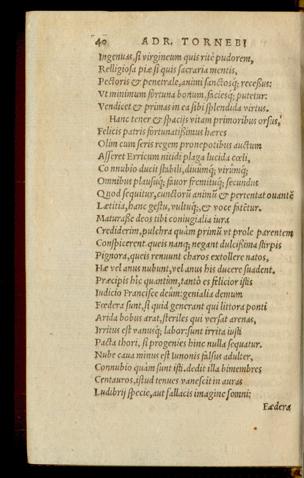 40 ADR. TORNEBI
Ingenuas, si virgineum quis ritè pudorem,
Relligiosa piæ si quis sacraria mentis,
Pectoris & penetrale, animi sanctosq; recessus:
Vt minimum fortuna bonum, faciesq; putetur:
Vendicet & primas in ea sibi splendida virtus.
Hanc tener & spacijs vitam prioribus orsus,
Felicis patris fortunatißimus hæres
Olim cum seris regem pronepotibus auctum
Asseret Erricum nitidi plaga lucida cœli,
Connubio ducit stabili, diuûmq; virûmq;
Omnibus plausuq́; fauor fremituq́; secundus
Quod sequitur, cunctorū animū & pertentat ouantē
Lætitia, hanc gestu, vultuq́;, & voce fatētur.
Maturasse deos tibi coniugialia iura
Crediderim, pulchra quàm primū vt prole parentem
Conspicerent. queis nanq; negant dulcißima stirpis
Pignora, queis renuunt charos extollere natos,
Hæ vel anus nubunt, vel anus his ducere suadent.
Præcipis hîc quantùm, tantò es felicior istis
Iudicio Francisce deûm: genialia demum
Fœdera sunt, si quid generant qui littora ponti
Arida bobus arat, steriles qui versat arenas,
Irritus est vanusq́; labor: sunt irrita iusti
Pacta thori, si progenies hinc nulla sequatur.
Nube caua minus est Iunonis falsus adulter,
Connubio quàm sunt isti. dedit illa bimembres
Centauros, istud tenues vanescit in auras
Ludibrij specie, aut fallacis imagine somni:
Fœdera